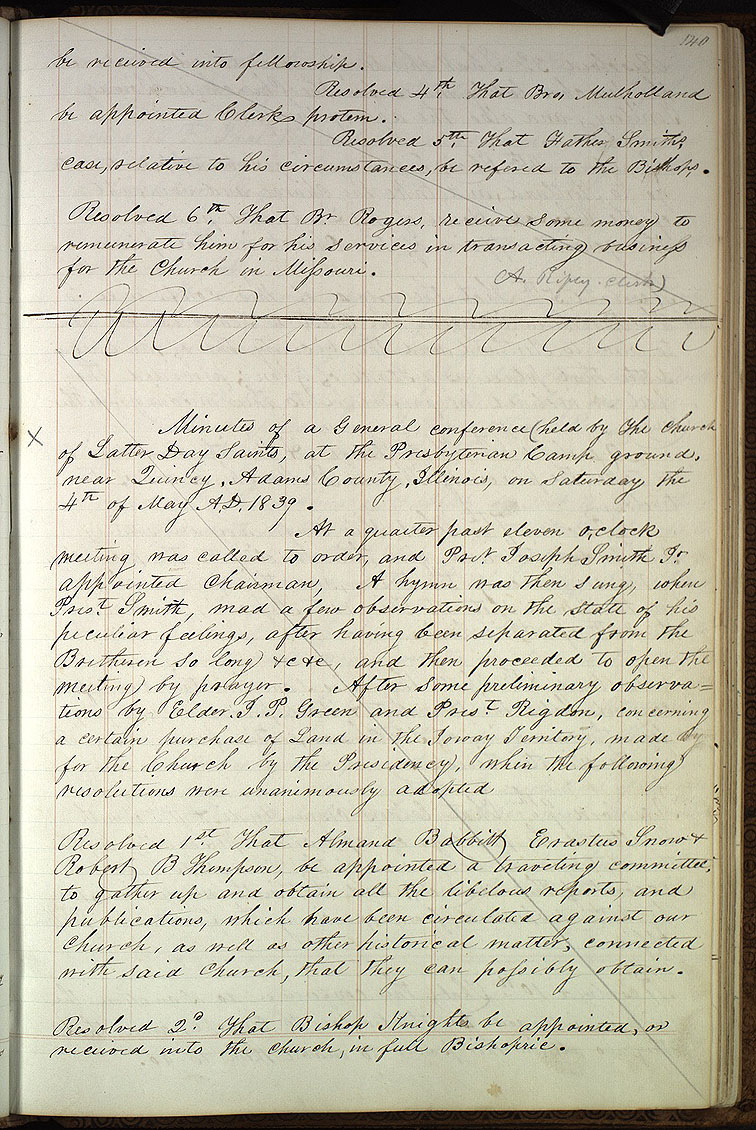 140
be received into fellowship.
Resolved 4th. That Bro, Mulholland
be appointed Clerk, protem.
Resolved 5th. That Father Smiths
case, relative to his circumstances, be refered to the Bishops.
Resolved 6th. That Br. Rogers, receive some money to
remunerate him for his services in transacting business
for the Church in Missouri.
A. Ripley - clerk
X
Minutes of a General conference held by the Church
of Latter Day Saints, at the Presbyterian Camp ground,
near Quincy, Adams County, Illinois, on Saturday the
4th of May A.D. 1839.
At a quarter past eleven o,clock
meeting was called to order, and Prst. Joseph Smith Jr
appointed Chairman, A hymn was then sung, when
Prest. Smith, mad a few observations on the state of his
peculiar feelings, after having been separated from the
Bretheren so long &c &c, and then proceeded to open the
meeting by prayer. After some preliminary observa=
tions by Elder. J. P. Green and Prest. Rigdon, concerning
a certain purchase of Land in the Ioway Territory, made by
for the Church by the Presidency, when the following
resolutions were unanimously adopted
Resolved 1st. That Almand Babbitt, Erastus Snow &
Robert B Thompson, be appointed a traveling committee,
to gather up and obtain all the libelous reports, and
publications, which have been circulated against our
Church, as well as other historical matter, connected
with said Church, that they can possibly obtain.
Resolved 2d. That Bishop Knights be appointed, or
received into the church, in full Bishopric.